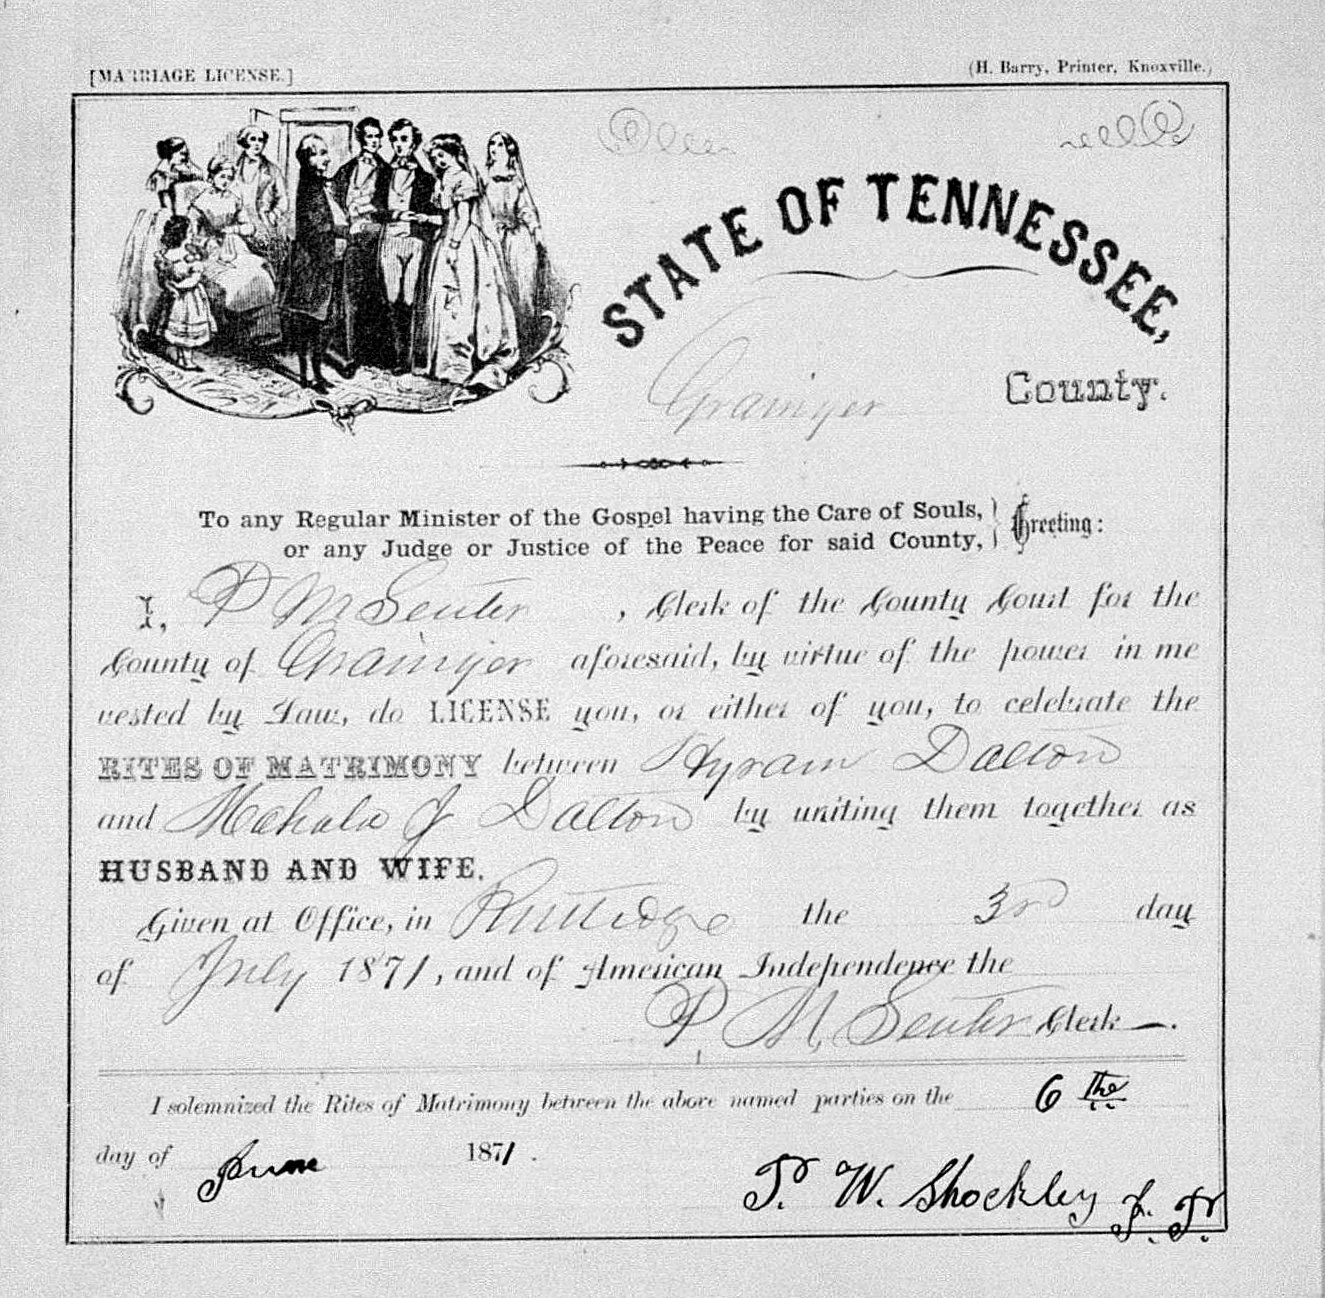 [MARRIAGE LICENSE.]
(H. Barry, Printer, Knoxville.)
STATE OF TENNESSEE,
Grainger County.
To any Regular Minister of the Gospel having the Care of Souls,
or any Judge or Justice of the Peace for said County, } Greeting:
I, P M Senter, Clerk of the County Court for the
County of Grainger aforesaid, by virtue of the power in me
vested by Law, do LICENSE you, or either of you, to celebrate the
RITES OF MATRIMONY between Hyram Dalton
and Mahala J Dalton by uniting them together as
HUSBAND AND WIFE.
Given at Office, in Rutledge the 3rd day
of July 1871, and of American Independence the
P. M. Senter Clerk —.
I solemnized the Rites of Matrimony between the above named parties on the 6 the
day of June 1871.
P. W. Shockley J. P.